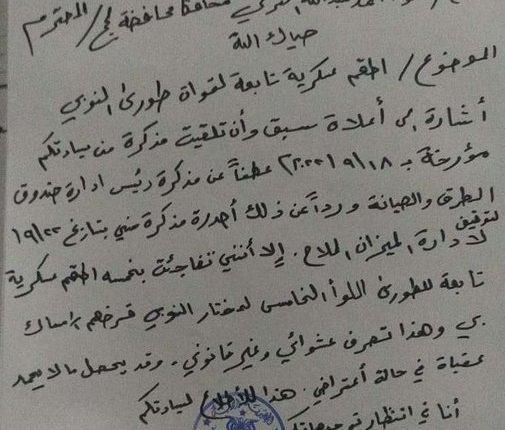 محافظ محافظة لحج / المحترم
حياك الله
الموضوع / اطقم عسكرية تابعة لقواة طورئ النوبي
أشارة الى أعلاة سبق وأن تلقيت مذكرة من سيادتكم
مؤرخة بـ ٢٠٢٢/٩/١٨ عطفاً عن مذكرة رئيس ادارة صندوق
الطرق والصيانة ورداً عن ذلك أصدرة مذكرة مني بتاريخ ١٩/٢٢
لترفيق
لادارة الميزان الملاح . إلا أنني تفاجئت بخمسه اطقم عسكرية
تابعة للطورئ اللوأ الخامس لمختار النوبي غرضهم امساك
بي وهذا تصرف عشوائي وغير قانوني . وقد يحصل مالا يحمد
عقباة في حالة أعتراضي . هذا للأطلاع لسيادتكم
أنا في انتظار